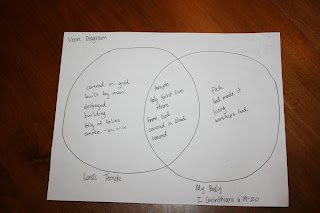 Venn Diagram
covered in gold
built by man
destroyed
building
Holy of Holies
temple
holy spirit lives
there
from God
covered in blood
flesh
God made it
living
worships God
Lord's Temple
My Body
I Corinthians 6:19-20